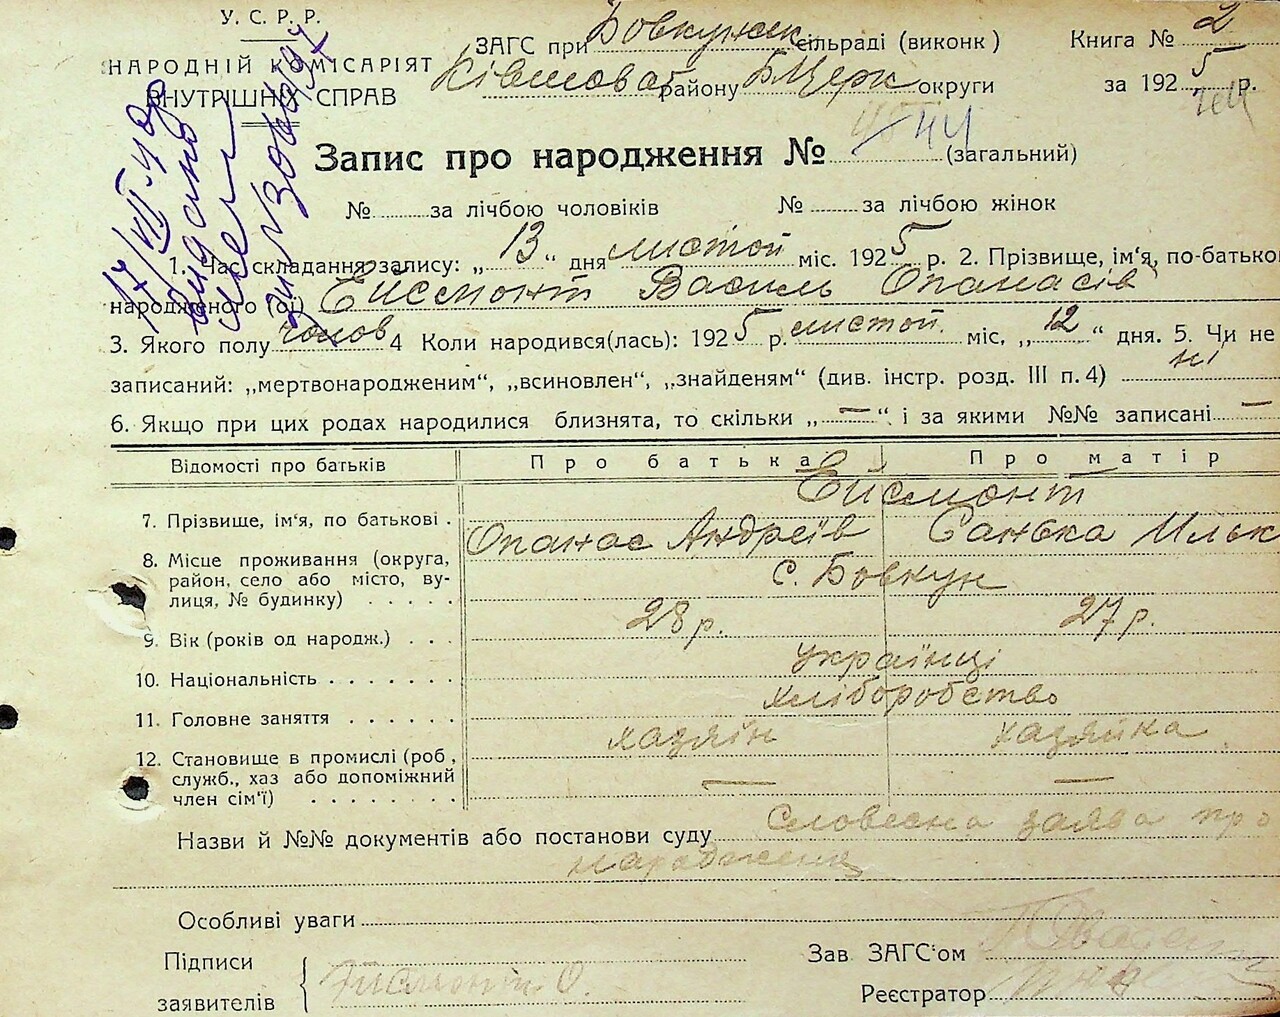 У. С. Р. Р.
НАРОДНІЙ КОМІСАРІЯТ
ВНУТРІШНІХ СПРАВ
ЗАГС при Бовкунск сільраді (виконк)
Книга № 2
району Б Церк округи
за 1925 р.
Запис про народження № 44 (загальний)
№ за лічбою чоловіків № за лічбою жінок
17/VII-49р
видано
1. Час складання запису: „13“ дня листоп міс. 1925 р. 2. Прізвище, ім'я, по-батькові
народженого (ої) Ейсмонт Василь Опанасів
3. Якого полу чолов 4 Коли народився(лась): 1925 р. листоп. міс. „12“ дня. 5. Чи не
записаний: „мертвонародженим“, „всиновлен“, „знайденям“ (див. інстр. розд. III п. 4) ні
6. Якщо при цих родах народилися близнята, то скільки „—“ і за якими №№ записані —
Відомості про батьків Про батька Про матір
Ейсмонт
7. Прізвище, ім'я, по батькові . Опанас Андреїв Санька Ильк
8. Місце проживання (округа,
район, село або місто, ву-
лиця, № будинку) . . . . . с. Бовкун
9. Вік (років од народж.) . . . 28 р. 27 р.
10. Національність . . . . . . . українці
11. Головне заняття . . . . . . хліборобство
хазяїн хазяйка
12. Становище в промислі (роб,
служб., хаз або допоміжний
член сім'ї) . . . . . . . . — —
Назви й №№ документів або постанови суду Словесна заява про
народження
Особливі уваги
Підписи
заявителів Ейсмонт О.
Зав. ЗАГС'ом
Реєстратор